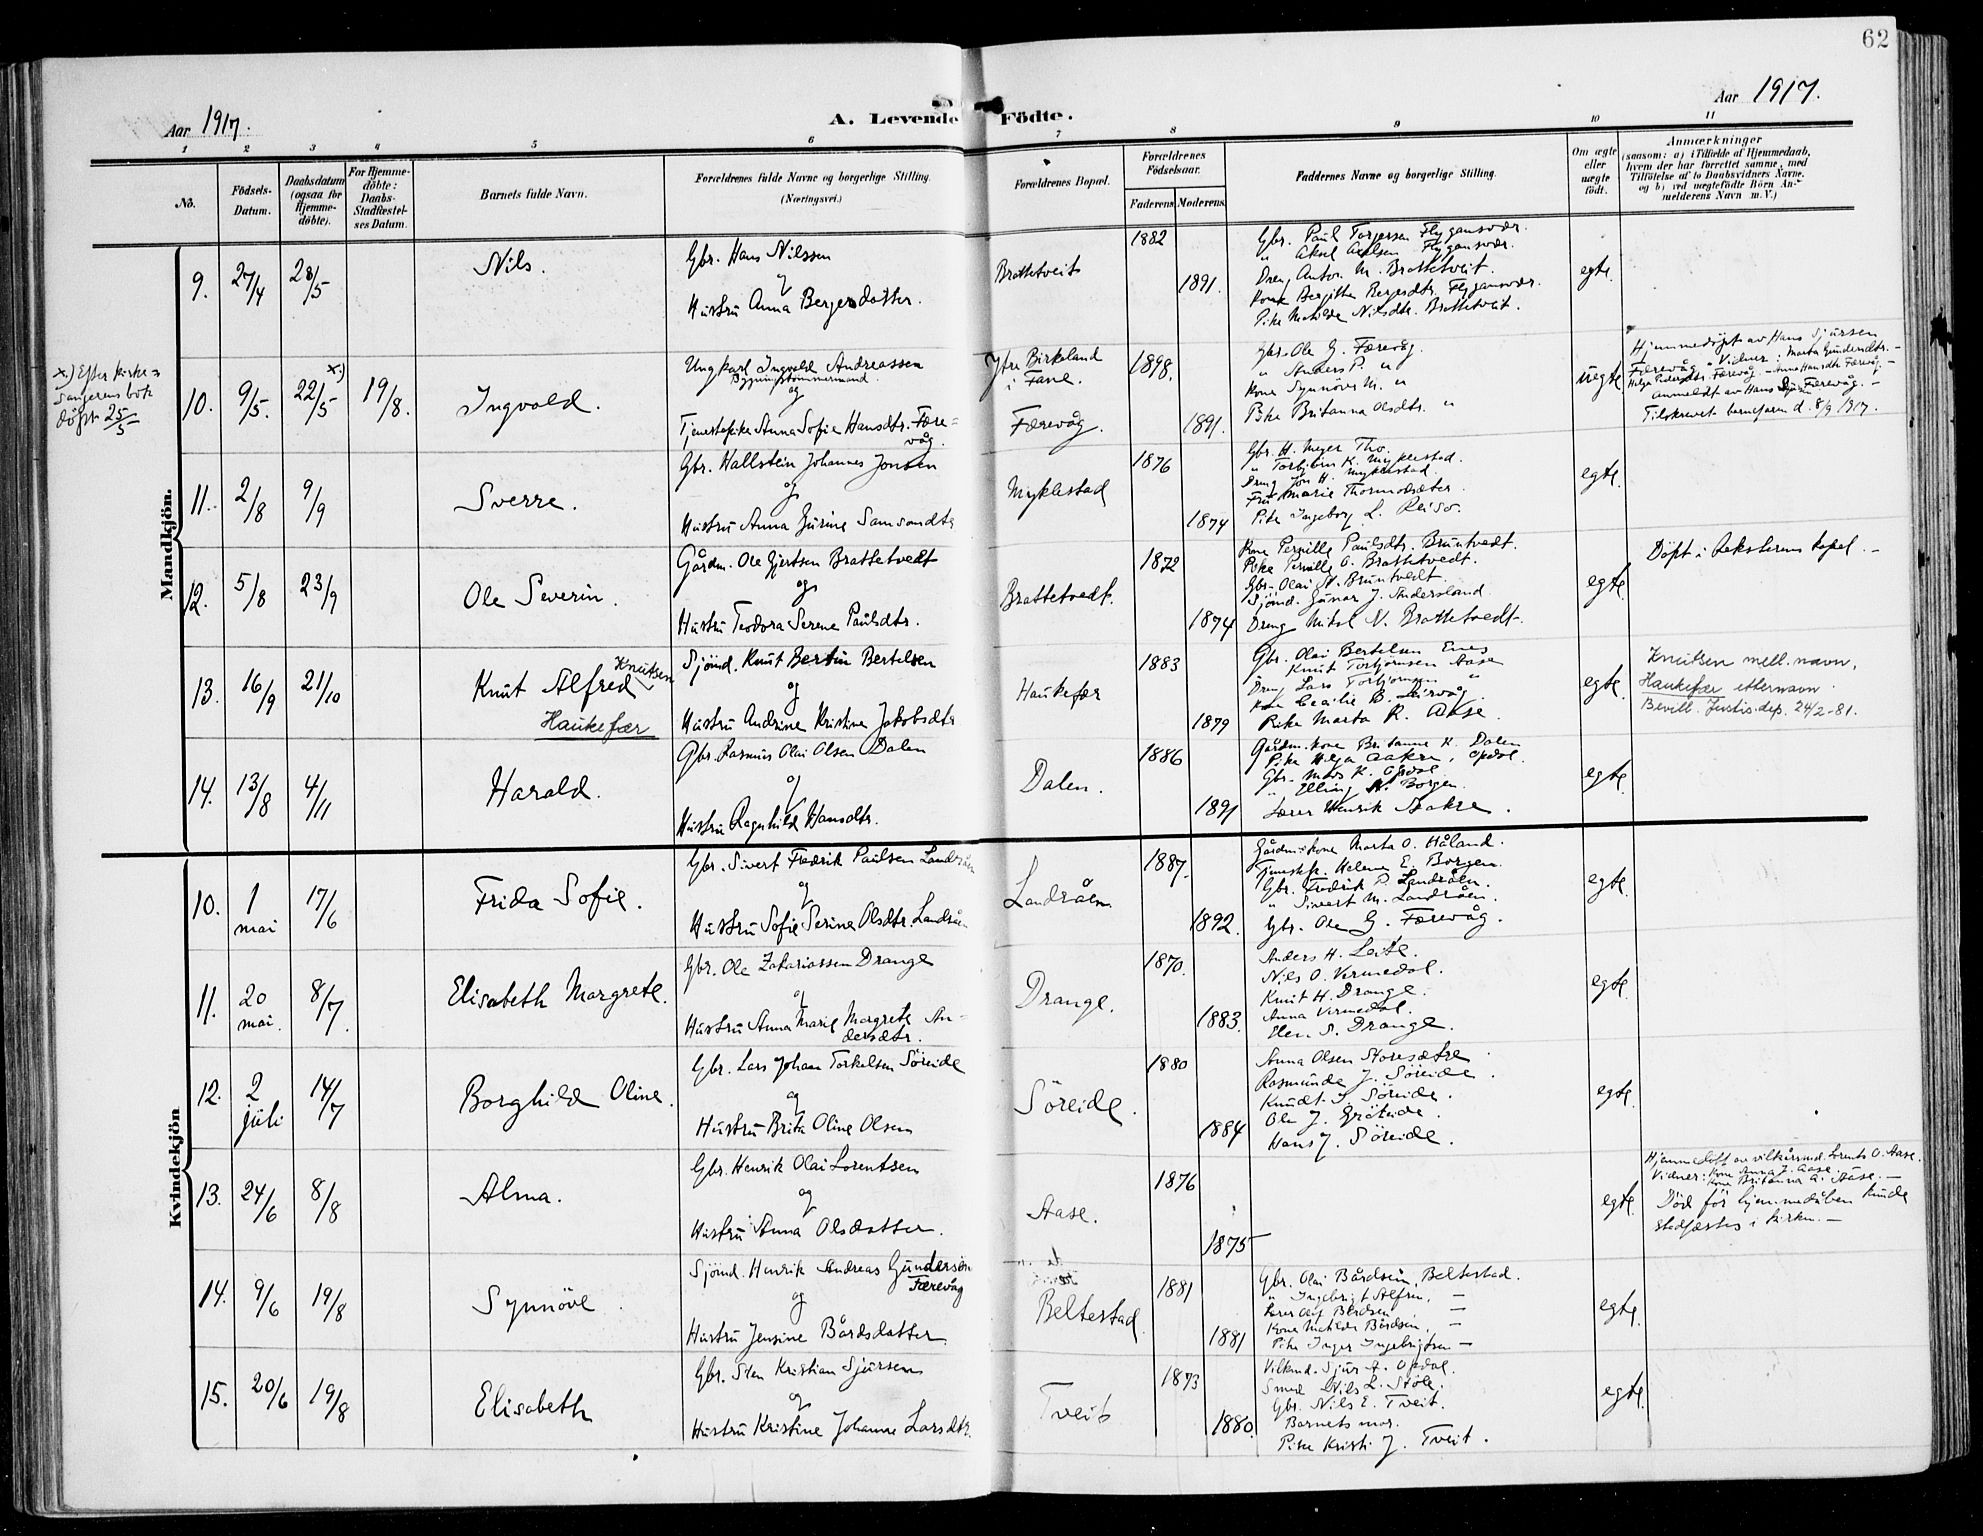 62
Aar 1917.
A. Levende Födte.
Aar 1917.
1 2 3 4 5 6 7 8 9 10 11
No.
Födsels-
Datum.
Daabsdatum
(ogsaa for
Hjemme-
döbte).
For Hjemme-
döbte:
Daabs-
Stadfæstel-
ses Datum.
Barnets fulde Navn.
Forældrenes fulde Navne og borgerlige Stilling.
(Næringsvei.)
Forældrenes Bopæl.
Forældrenes
Födselsaar.
Faderens Moderens
Faddernes Navne og borgerlige Stilling.
Om ægte
eller
uægte
födt.
Anmærkninger
(saasom: a) i Tilfælde af Hjemmedaab,
hvem der har forrettet samme, med
Tilföielse af to Daabsvidners Navne,
og b) ved uægtefödte Börn An-
melderens Navn m. V.)
Mandkjön.
9. 27/4 28/5 Nils.
Gbr. Hans Nilssen
og
Hustru Anna Bergesdatter.
Brattetveit
1882
1891.
Gbr. Paul Torgersen Flygansvær.
" Aksel Flygansvær.
Dreng Anton M. Brattetveit.
Kone Bergitha Bergesdtr. Flygansvær.
Pike Matilde Nilsdtr. Brattetveit.
egte.
x.) Efter kirke-
sangerens bok
döpt 25/5
10. 9/5. 22/5 x.) 19/8. Ingvald.
Ungkarl Ingvald Andreassen
Bygningstömmermand.
og
Tjenestepike Anna Sofie Hansdtr. Fære-
våg.
Ytre Birkeland
i Fane.
Færevåg.
1898.
1891.
Gbr. Ole G. Færevåg.
" Anders P. "
Kone Synnöve M. "
Pike Britanna Olsdtr. "
uegte
Hjemmedöpt av Hans Sjursen
Færevåg. Vidner: Marta Gundersdtr. -
Helga Pedersdtr. Færevåg - Anna Hansdtr. Færevåg. -
Anmeldt av Hans Færevåg. -
Tilskrevet barnefaren d. 8/9 1917.
11. 2/8 9/9 Sverre.
Gbr. Hallstein Johannes Jonsen
og
Hustru Anna Gurine Samsondtr
Myklestad
1876
1874
Gbr. H. Meyer Tho.
" Torbjörn K. Myklestad.
Dreng Jon H. Myklestad.
Fru Marie Thormodsæter.
Pike Ingeborg L. Reisö.
egte.
12. 5/8 23/9 Ole Severin.
Gårdm. Ole Gjertsen Brattetvedt
og
Hustru Teodora Serene Paulsdtr.
Brattetvedt.
1872
1874
Kone Pernille Paulsdtr. Bruntvedt.
Pike Pernille O. Brattetvedt.
Gbr. Olai H. Bruntvedt.
Sjömd. Gunar J. Andersland.
Dreng Mikal N. Brattetvedt.
egte.
Döpt i Sekstens kapel. -
13. 16/9 21/10 Knut Alfred Knutsen
Haukefær
Sjömd. Knut Bertin Bertelsen
og
Hustru Andrine Kristine Jakobsdtr
Haukefær
1883
1879
Gbr. Olai Bertelsen Enes
Knut Torbjörnsen Aase
Dreng Lars Torbjörnsen "
Kone Cecilie B. Leirvåg.
Pike Marta R. Akse.
egte.
Knutsen mell. navn.
Haukefær etternavn.
Bevill. Justis. dep. 24/2-81.
14. 13/8 4/11 Harald.
Gbr. Rasmus Olai Olsen Dalen
og
Hustru Ragnhild Hansdtr.
Dalen.
1886
1891
Gårdm. kone Britanna K. Dalen
Pike Helga Aakre, Opdal.
Gbr. Mons K. Opdal.
" Elling N. Borgen.
Lærer Henrik Aakre.
egte.
Kvindekjön
10. 1 mai 17/6 Frida Sofie.
Gbr. Sivert Fredrik Paulsen Landråen
og
Hustru Sofie Serine Olsdtr. Landråen
Landråen
1887.
1892.
Gårdm. kone Marta O. Håland.
Tjenestep. Helene E. Borgen.
Gbr. Fredrik P. Landråen.
" Sivert M. Landråen.
Gbr. Ole G. Færevåg.
egte.
11. 20 mai. 8/7. Elisabeth Margrete.
Gbr. Ole Zakariassen Drange
og
Hustru Anna Marie Margrete An-
dersdtr.
Drange.
1870.
1883.
Anders H. Leite.
Nils O. Vermedal.
Knut H. Drange.
Anna Vermedal.
Elen S. Drange.
egte.
12. 2 juli 14/7 Borghild Oline.
Gbr. Lars Johan Torkelsen Söreide
og
Hustru Brita Oline Olsen
Söreide.
1880
1884
Anna Olsen Storesætre.
Rasmunde J. Söreide.
Knudt. J. Söreide.
Ole J. Gröteide.
Hans J. Söreide.
egte.
13. 24/6 8/8 Alma.
Gbr. Henrik Olai Lorentsen
og
Hustru Anna Olsdatter.
Aase.
1876
1875
egte.
Hjemmedöpt av vilkårsmd. Lorents O. Aase.
Vidner: Kone Anna J. Aase.
Kone Britanna A. Aase. -
Död för hjemmedåben kunde
stadfæstes i kirken. -
14. 9/6 19/8 Synnöve.
Sjömd. Henrik Andreas Gundersen
Færevåg
og
Hustru Jensine Bårdsdatter.
Beltestad
1881
1881
Gbr. Olai Bårdsen, Beltestad.
" Ingebrigt Alfsen. —
Lærer Bårdsen —
Kone Matilde Bårdsen. —
Pike Inger Ingebrigtsen —
egte.
15. 20/6 19/8 Elisabeth
Gbr. Sten Kristian Sjursen
og
Hustru Kristine Johanne Larsdtr.
Tveit
1873
1880.
Vilkmd. Sjur A. Opdal.
Smed Nils L. Stöle.
Gbr. Nils E. Tveit.
Barnets mor.
Pike Kristi J. Tveit.
egte.